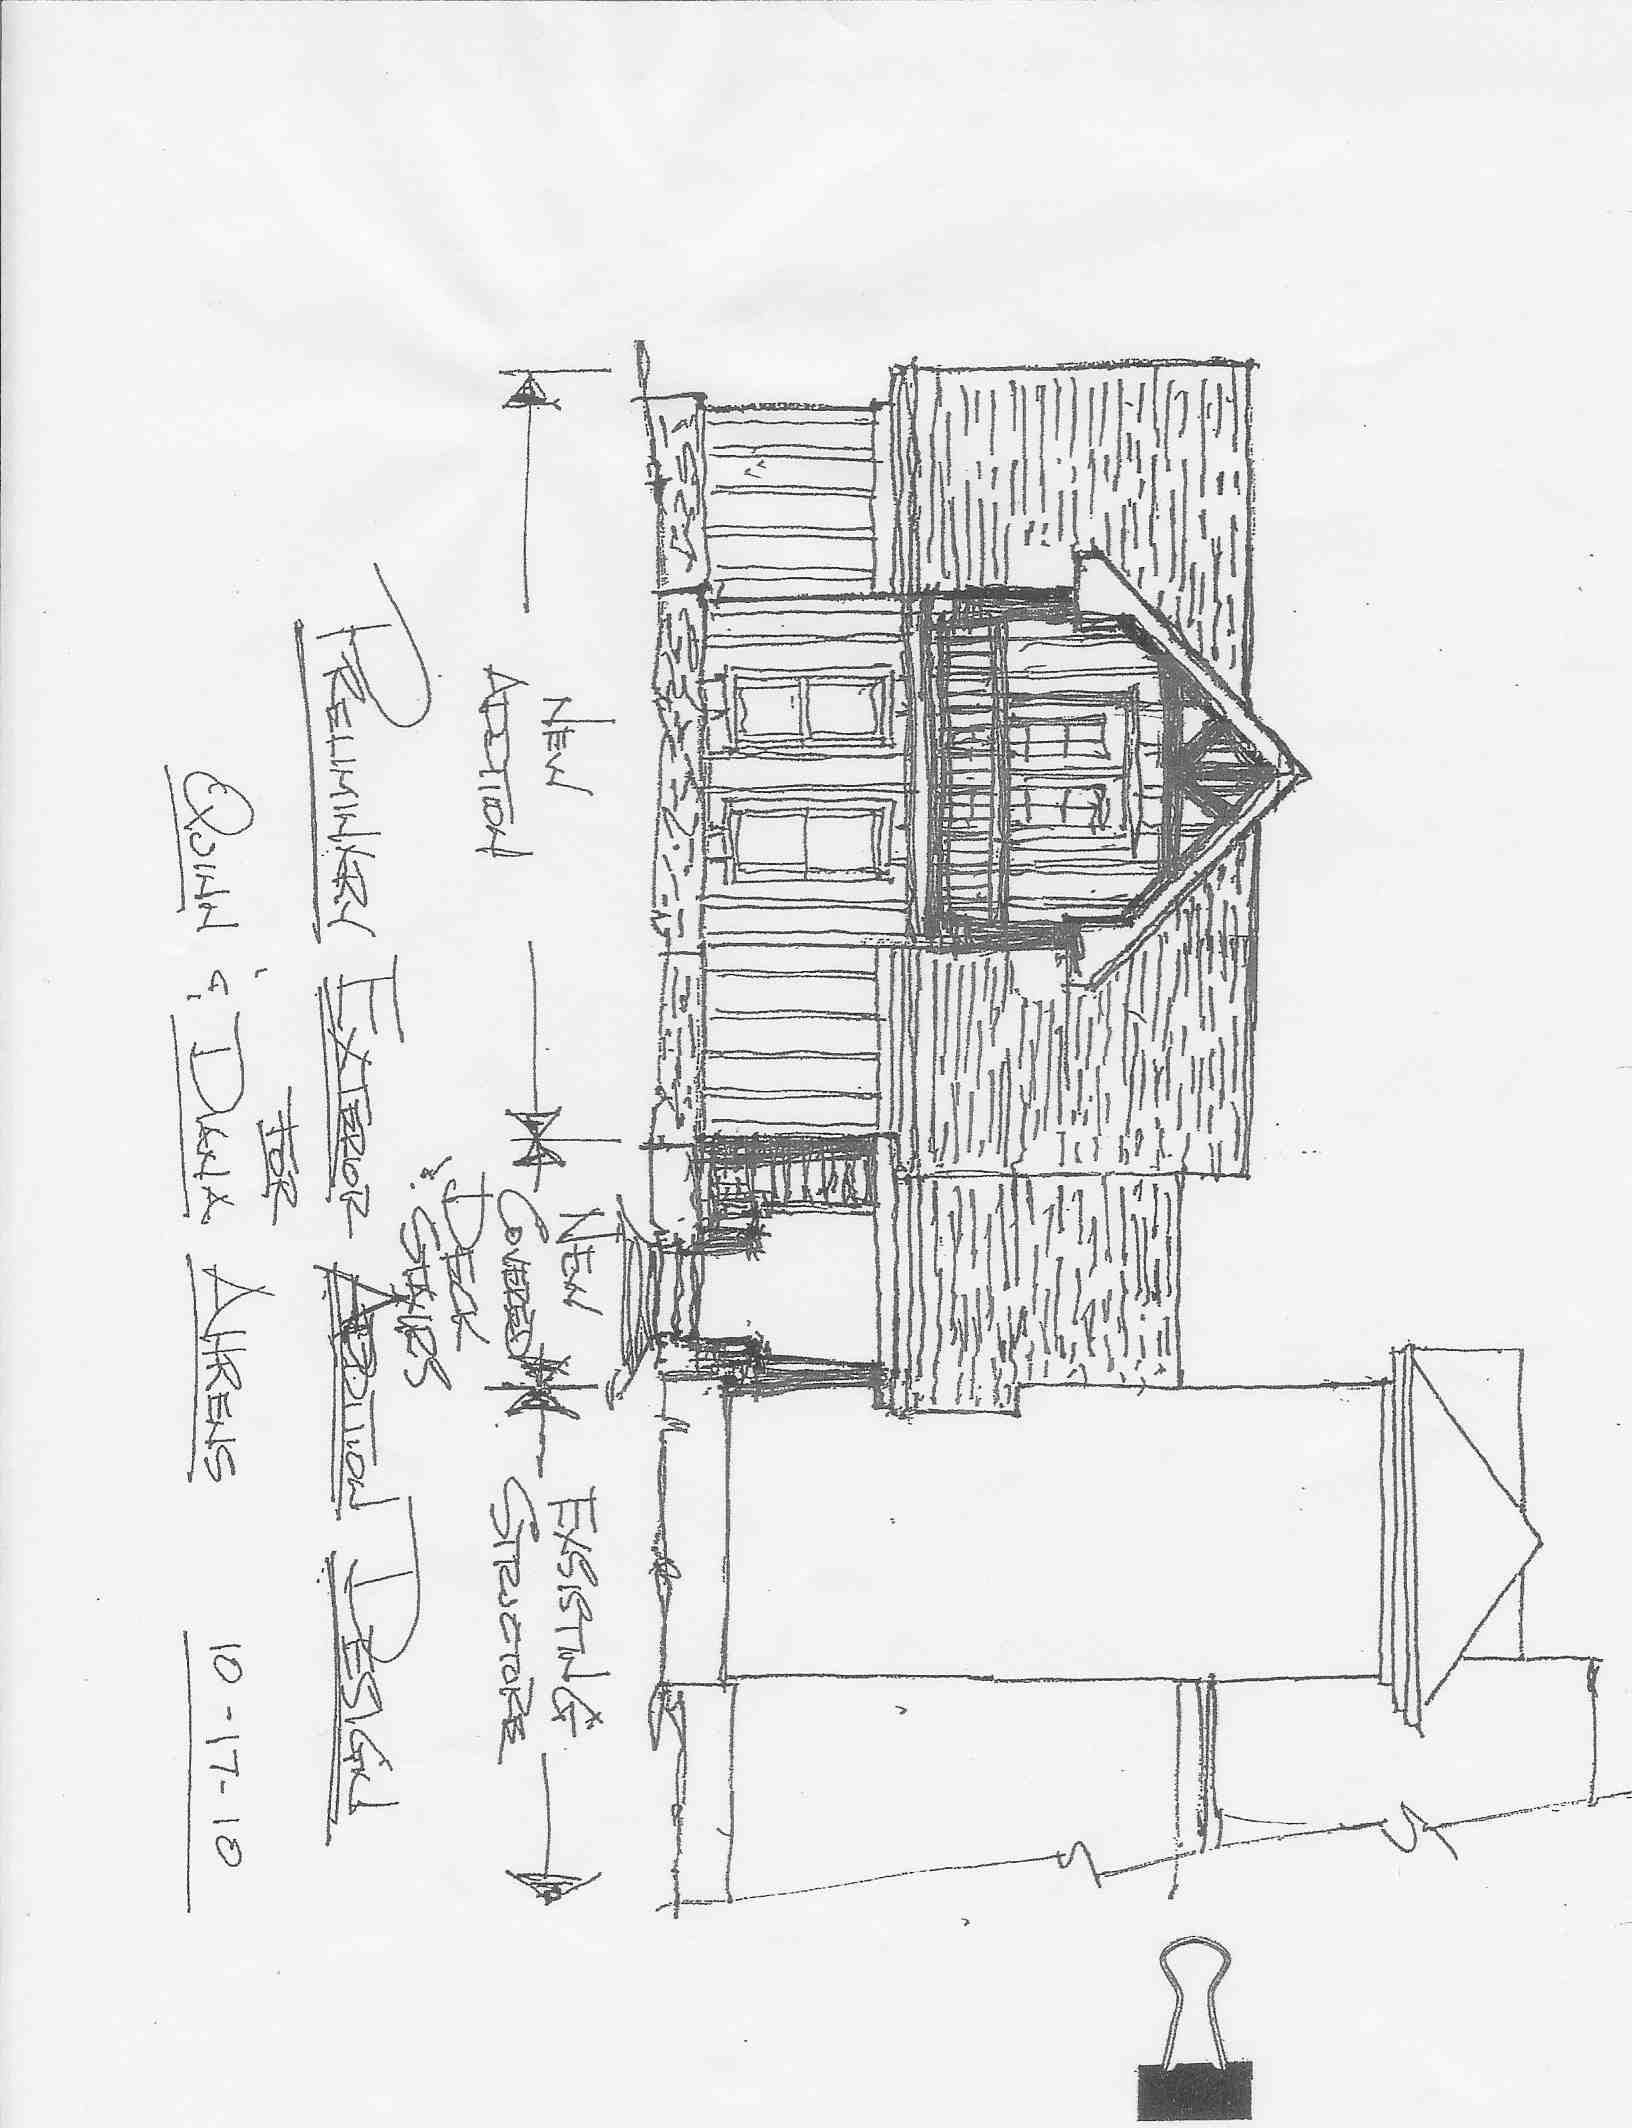 NEW
ADDITION
NEW
COVERED
DECK
& STAIRS
EXSISTING
STRUCTURE
PRELIMINARY EXTERIOR ADDITION DESIGN
FOR
QUINN & DANA AHRENS
10-17-10